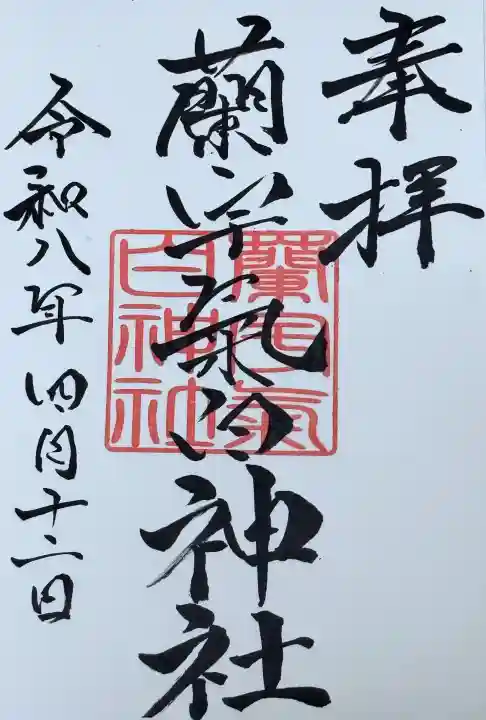 奉拝
蘭宇氣白神社
蘭宇氣
白神社
令和八年四月十二日